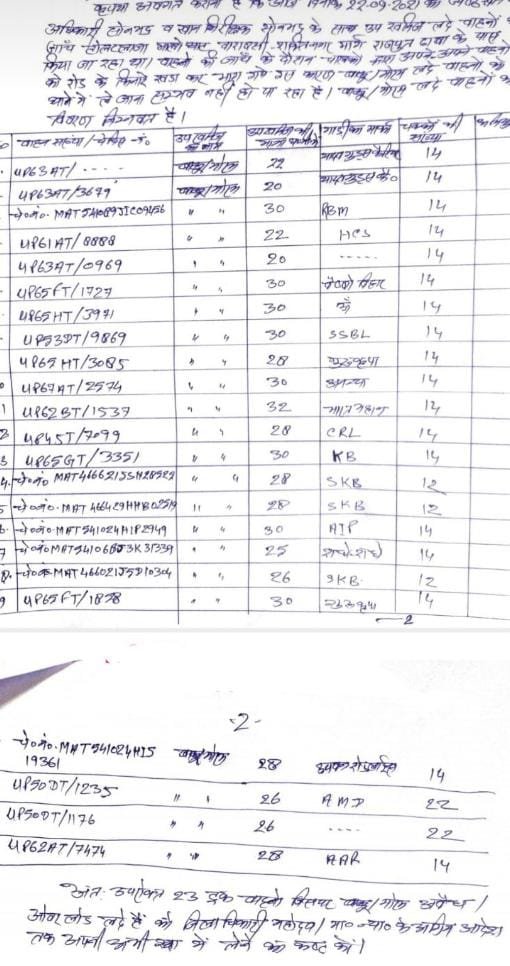 कृपया अवगत कराना है कि आज दिनांक 22.09.2021 को
अधिकारी सोनभद्र व खान निरीक्षक सोनभद्र के साथ उप खनिज लदे वाहनों
जाँच वाराणसी-शक्तिनगर मार्ग राजपूत ढाबा के पास
किया जा रहा था। वाहनों की जाँच के दौरान चालकों द्वारा अपने अपने वाहनों
को रोड के किनारे खड़ा कर भाग गये इस कारण बालू/मोरम लदे वाहनों को
थाने में ले जाना सम्भव नहीं हो पा रहा है। बालू/मोरम लदे वाहनों का
विवरण निम्नवत है।
वाहन संख्या/चेचिस नं० उपखनिज का नाम गाड़ी का मार्का चक्कों की संख्या
UP63AT/ ..... बालू/मोरम 22 14
UP63AT/3679 बालू/मोरम 20 14
चे०नं०. MAT541089JIC09456 " " 30 RBM 14
UP61AT/8888 " " 22 HCS 14
UP63AT/0969 " " 20 ..... 14
UP65FT/1727 " " 30 14
UP65HT/3971 " " 30 ॐ 14
UP53DT/9869 " " 30 SSBL 14
UP65HT/3085 " " 28 गुरुकृपा 14
UP67AT/2574 " " 30 अनन्या 14
1 UP62BT/1537 " " 32 14
2 UP45T/7099 " " 28 CRL 14
3 UP65GT/3351 " " 30 KB 14
4. चे०नं०. MAT466621JSH28522 " " 28 SKB 12
5 चे०नं०. MAT466429HHB02519 " " 28 SKB 12
6. चे०नं०-MAT541024HIP2949 " " 30 AIP 14
7 चे०नं० " " 25 राधे-राधे 14
8. चे०नं० MAT466021J5D10304 " " 26 SKB. 12
9 UP65FT/1898 " " 30 गुरुकृपा 14
—2
-2-
चे०नं०. MAT541024HIS बालू/मोरम 28 14
19361
UP50DT/1235 " " 26 AMD 22
UP50DT/1176 " " 26 .... 22
UP62AT/7474 " " 28 AAR 14
अतः उपरोक्त 23 ट्रक वाहनो जिसपर बालू/मोरम अवैध/
ओवरलोड लदे हैं को जिलाधिकारी महोदय/मा० न्या० के अग्रिम आदेश
तक अपनी अभिरक्षा में लेने का कष्ट करें।